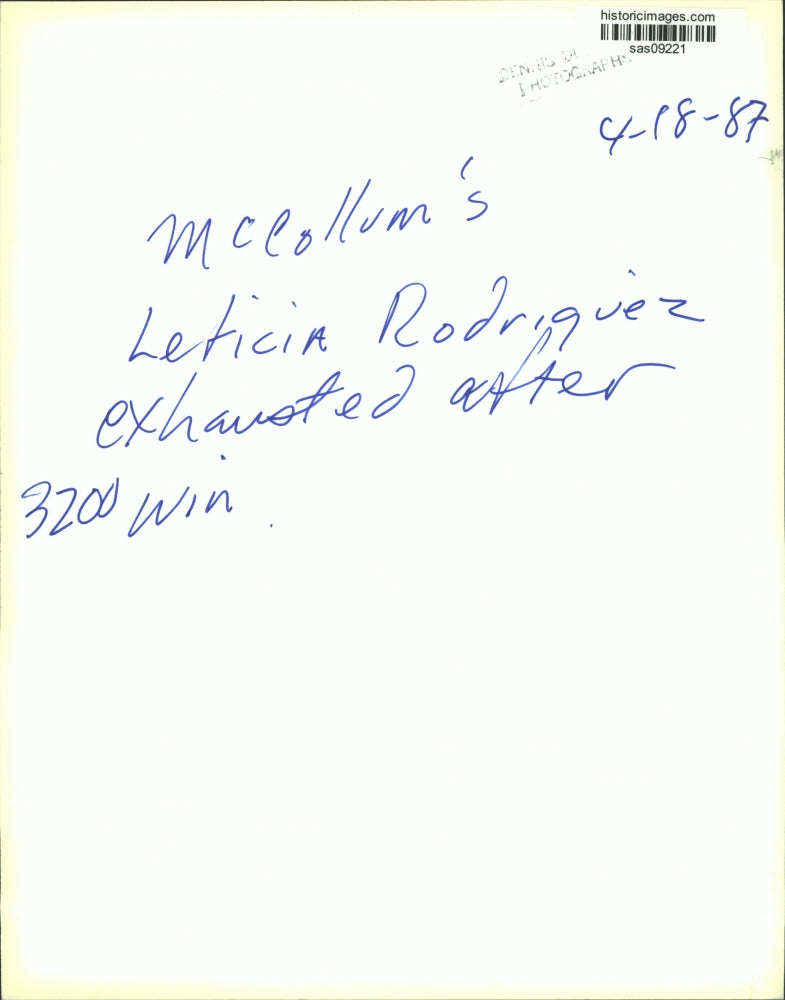 historicimages.com
sas09221
PHOTOGRAPH
4-18-87
McCollum's
Leticia Rodriguez
exhausted after
3200 win.